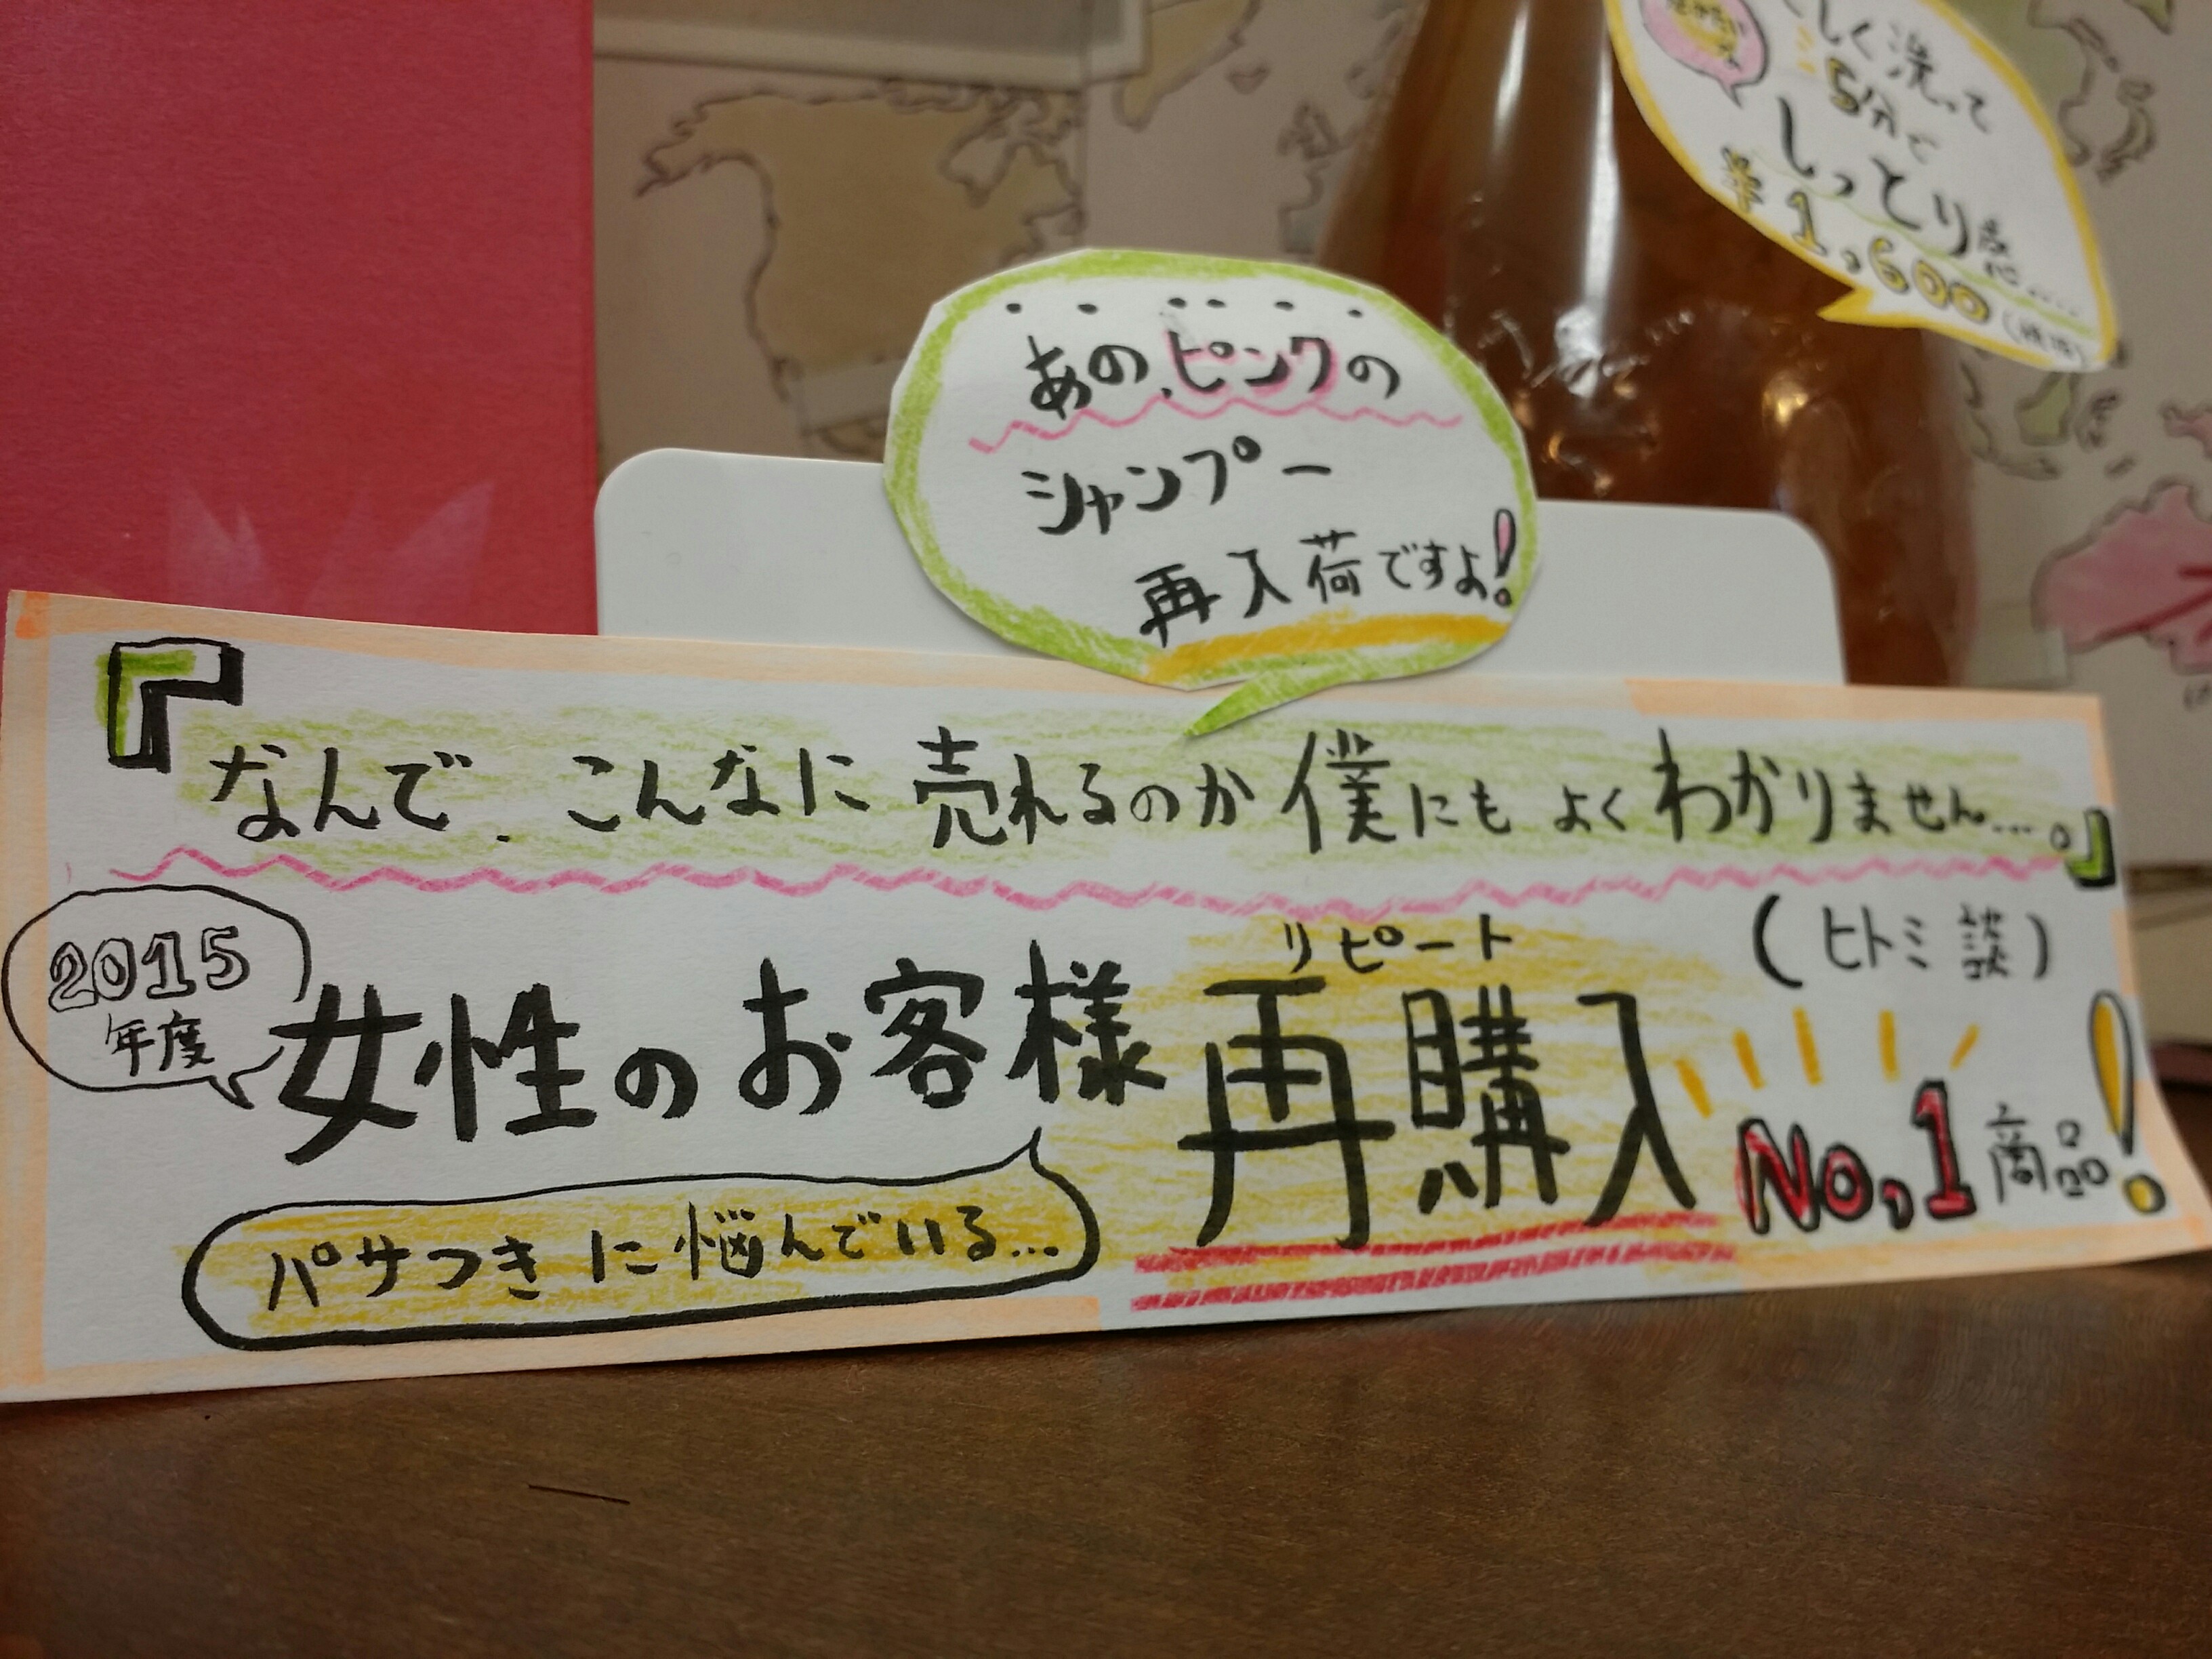 しく洗って
5分で
しっとり感....
¥1,600
あの、ピンクの
シャンプー
再入荷ですよ!
『なんで、こんなに売れるのか僕にもよくわかりません...。』
(ヒトミ談)
2015
年度
リピート
女性のお客様再購入No,1商品!
パサつきに悩んでいる...